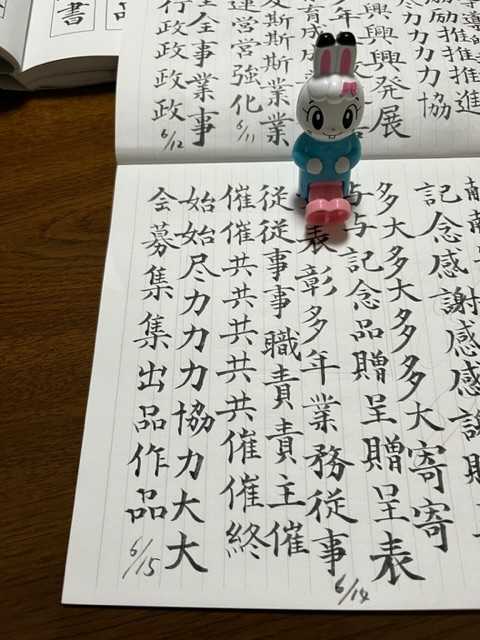 励推推進
尽力力力力協
興興興発展
多年
育成成
斯斯斯業業
運営営強化
6/11
全全事業事
行政政政政
6/12
書
品
記念感謝感感謝
多大多大多多大寄寄
与与記念品贈呈贈呈表
表彰多年業務従事
6/14
従従事事職責責主催
催催共共共共共催催終
始始尽力力力協力大大
会募集集出品作品
6/15